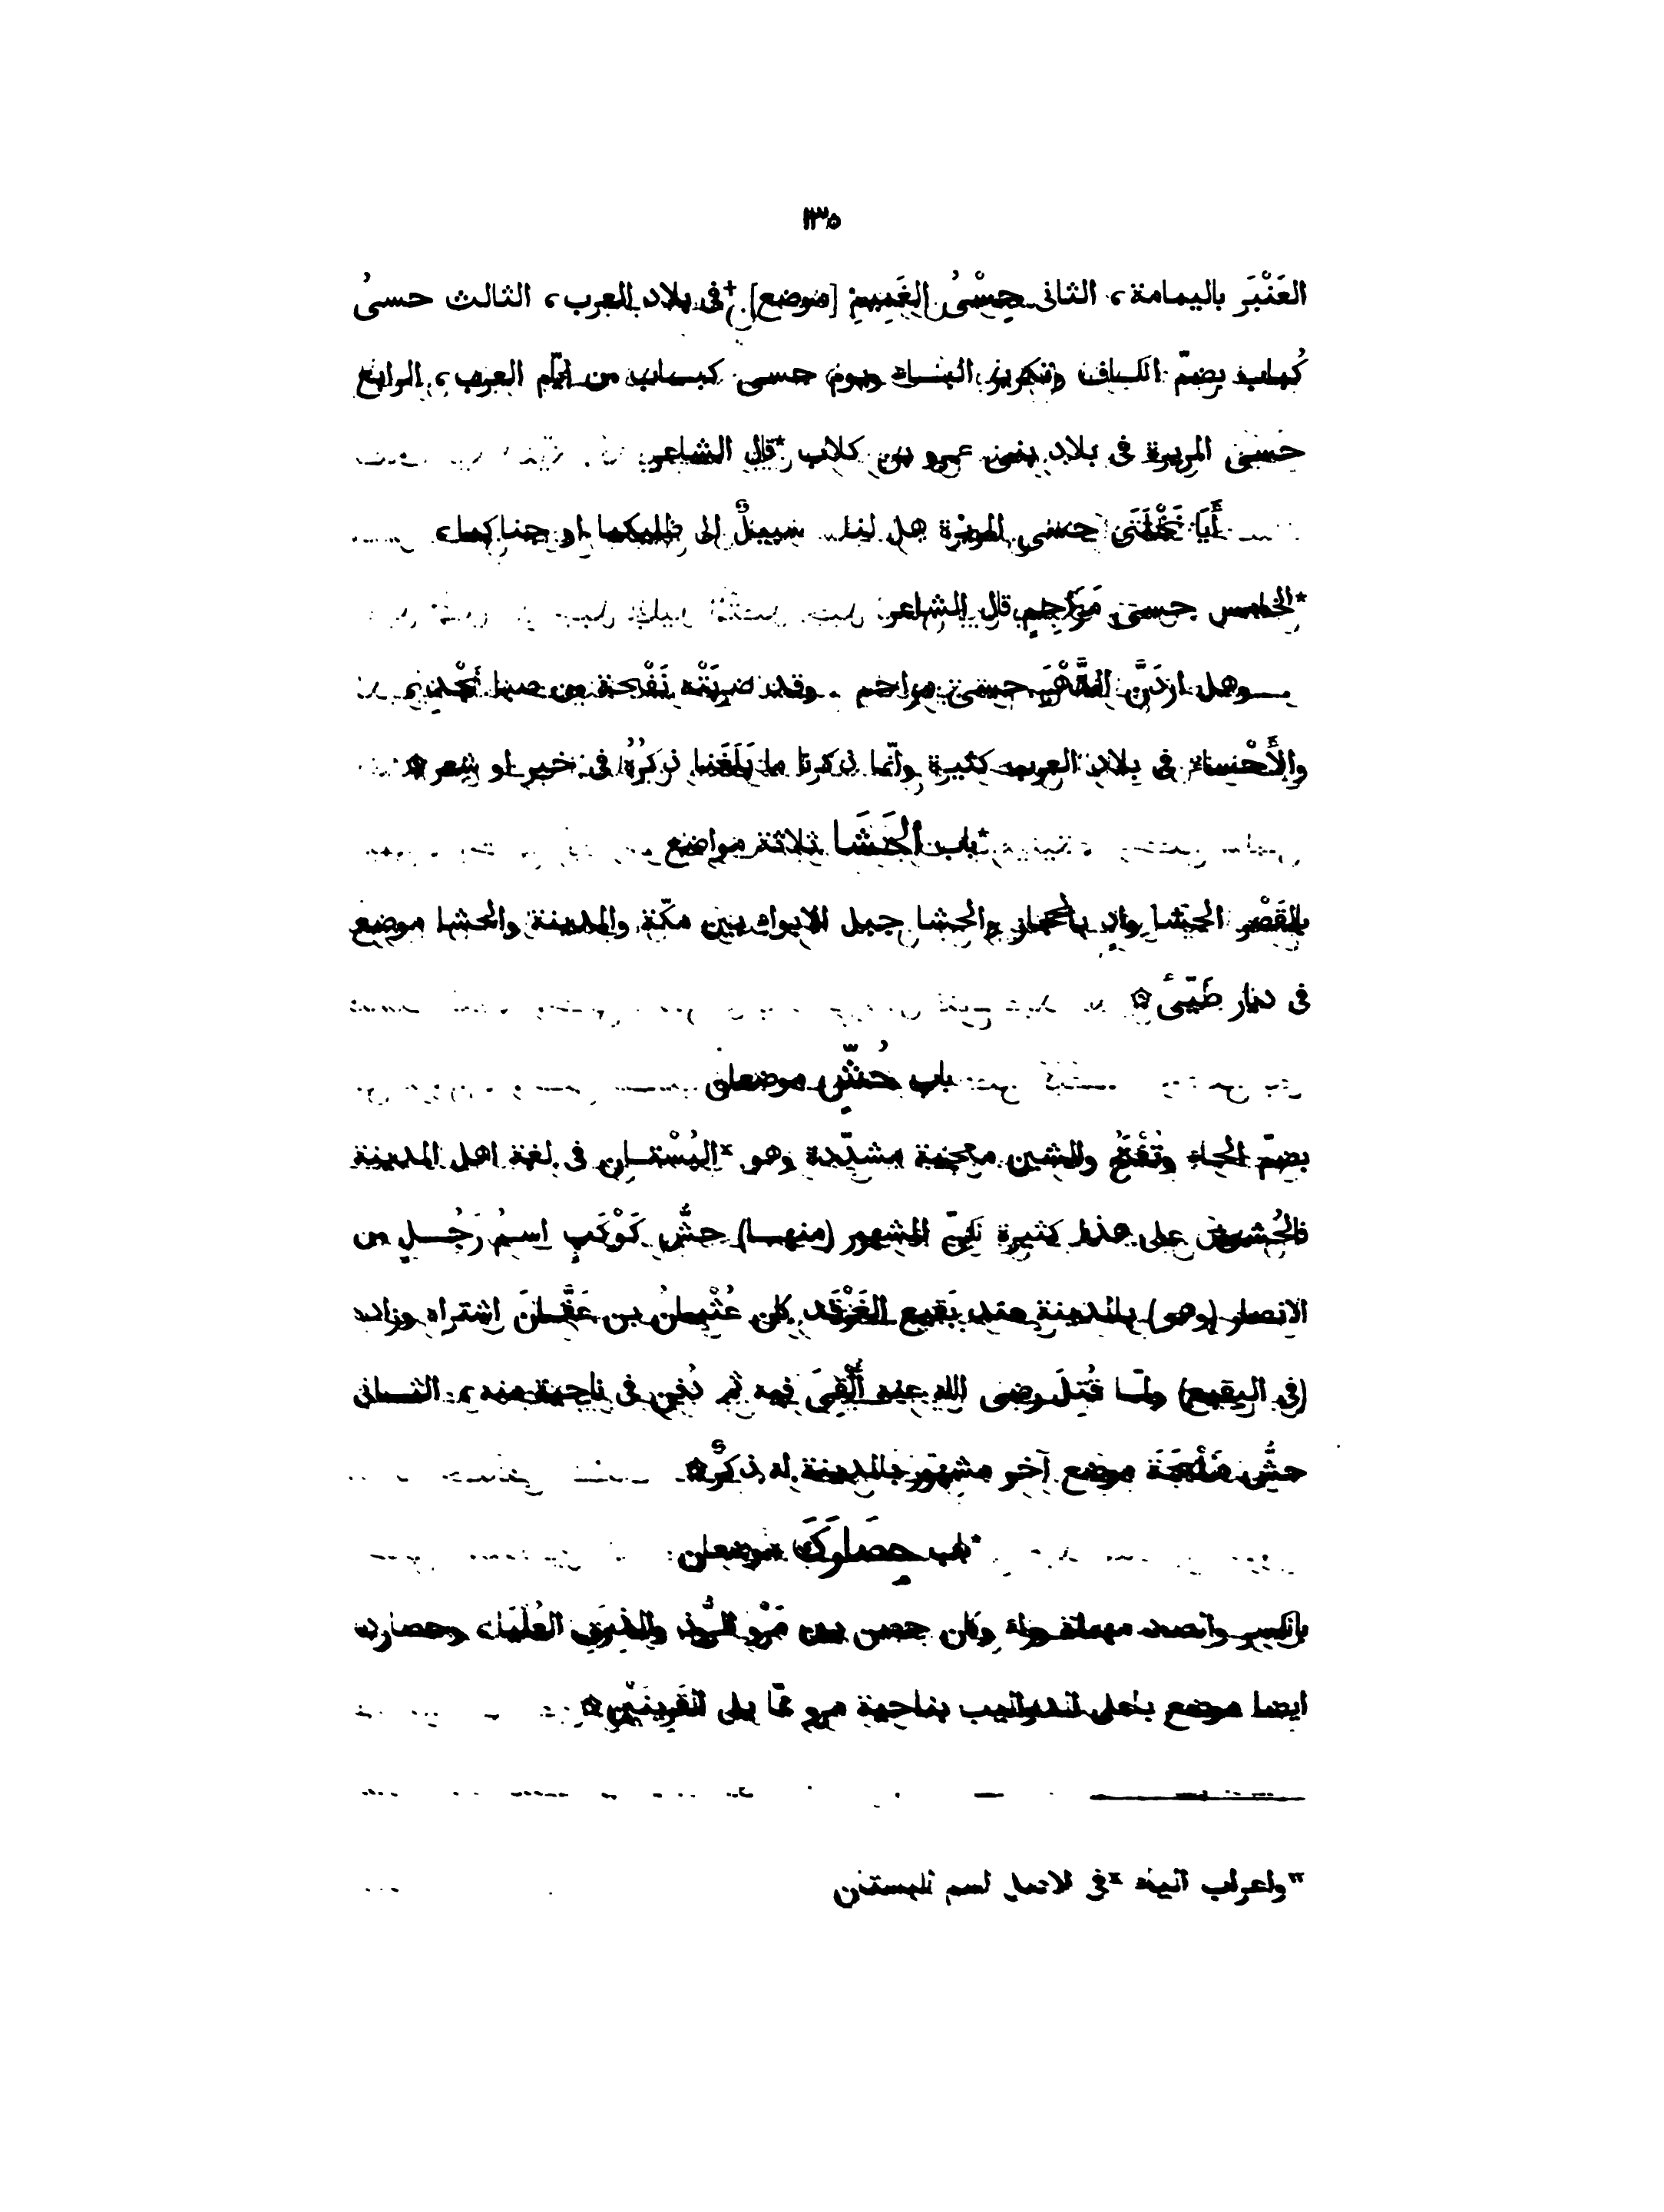 ١٣٥
العَنْبَر باليمامة، الثانى حِسْىُ الغَمِيم [موضع] †فى بلاد العرب، الثالث حسىُ
كُباب بضمّ الكاف وتكرير الباء ويوم حسى كباب من ايّام العرب، الرابع
حسى المريرة فى بلاد بنى عمرو بن كلاب *قال الشاعر
أَيَا نَخْلَتَىْ حسى المريرة هل لنا سبيلٌ الى ظليكما او جناكما،
*الخامس حسى مَزاحِمٍ قال الشاعر
وهل اردَنَّ الدَّهْرَ حسى مزاحم وقد ضربَتْه نَفْحة من صبا نَجْدِ،
والأَحْساء فى بلاد العرب كثيرة وانّما ذكرنا ما بَلَغَنا ذكرُه فى خبر او شعر ۞
*باب الحَشَا ثلاثة مواضع
بالقَصْر الحَشا وادٍ بالحجاز والحشا جبل الابواء بين مكّة والمدينة والحشا موضع
فى ديار طَيّئ ۞
باب حُشٍّ موضعان
بضمّ الحاء وتُفْتَحُ والشين معجمة مشدّدة وهو *البُسْتان فى لغة اهل المدينة
فالحُشوش على هذا كثيرة لكنّ المشهور (منها) حشُّ كَوْكَبٍ اسمُ رَجُل من
الانصار (وهو) بالمدينة عند بَقيع الغَرْقَد كان عُثْمانُ بن عَفَّانَ اشتراه وزاده
(فى البقيع) ولمّا قُتلَ رضى الله عنه أُلْقِىَ فيه ثم دُفن فى ناحية منه، الثانى
حشُّ طَلْحَةَ موضع آخر مشهور بالمدينة له ذكرٌ ۞
*باب حِصَارَك موضعان
بالكسر والصاد مهملة وراء وكان حصن بين مَرْو الرُّوذ والدزق العُلْيا، وحصارك
ايضا موضع باعلى الدواليب بناحية مرو ممّا يلى القَرينَيْن ۞
"واعراب ابنية *فى الاصل اسم للبستان